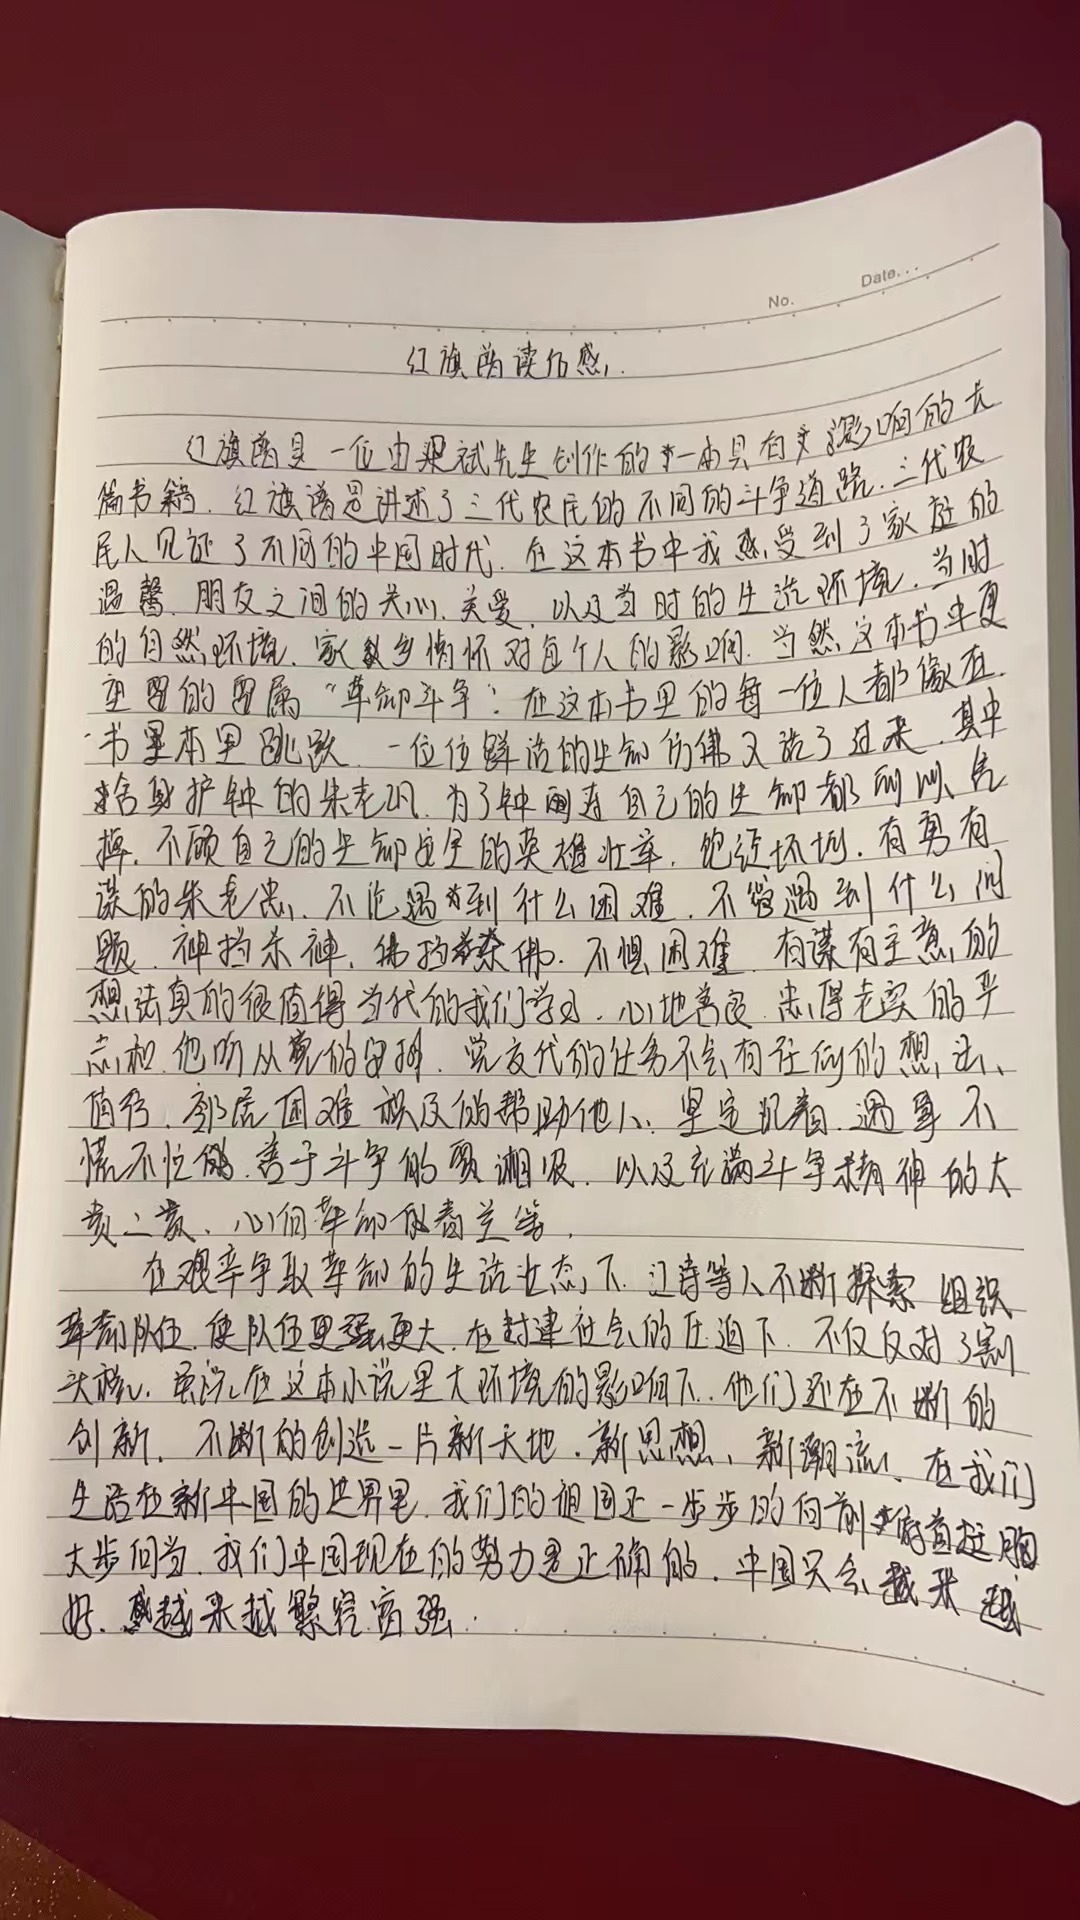 No.
Date...
红旗谱读后感
红旗谱是一位由梁斌先生创作的一本具有影响的长
篇书籍.红旗谱是讲述了三代农民的不同的斗争道路.三代农
民人见证了不同的中国时代.在这本书中我感受到了家庭的
温馨.朋友之间的关心、关爱.以及当时的生活环境.当时
的自然环境.家乡情怀对每个人的影响.当然这本书中更
重要的要属“革命斗争”.在这本书里的每一位人都像在
书本里跳跃.一位位鲜活的生命仿佛又活了过来.其中
舍身护钟的朱老巩.为了钟自己的生命都可以舍
掉.不顾自己的生命安全的英雄壮举.饱经.有勇有
谋的朱老忠.不论遇到什么困难.不管遇到什么问
题.神挡杀神.佛挡杀佛.不惧困难.有谋有主意的
想法真的很值得当代的我们学习.心地善良.忠厚老实的严
志和.他听从党的安排.党交代的任务不会有任何的想法、
邻居困难积极的帮助他人.坚定沉着.遇事不
慌不忙.善于斗争的贾湘农.以及充满斗争精神的大
贵二贵、心向革命的春兰等.
在艰辛争取革命的生活状态下.江涛等人不断探索组织
革命队伍.使队伍更强更大.在封建社会的压迫下.不仅反对了割
头税.虽说在这本小说里大环境的影响下.他们还在不断的
创新.不断的创造一片新天地.新思想、新潮流、在我们
生活在新中国的世界里.我们的祖国还一步步的向前
大步.我们中国现在的努力是正确的.中国只会越来越
好.越来越繁荣富强.